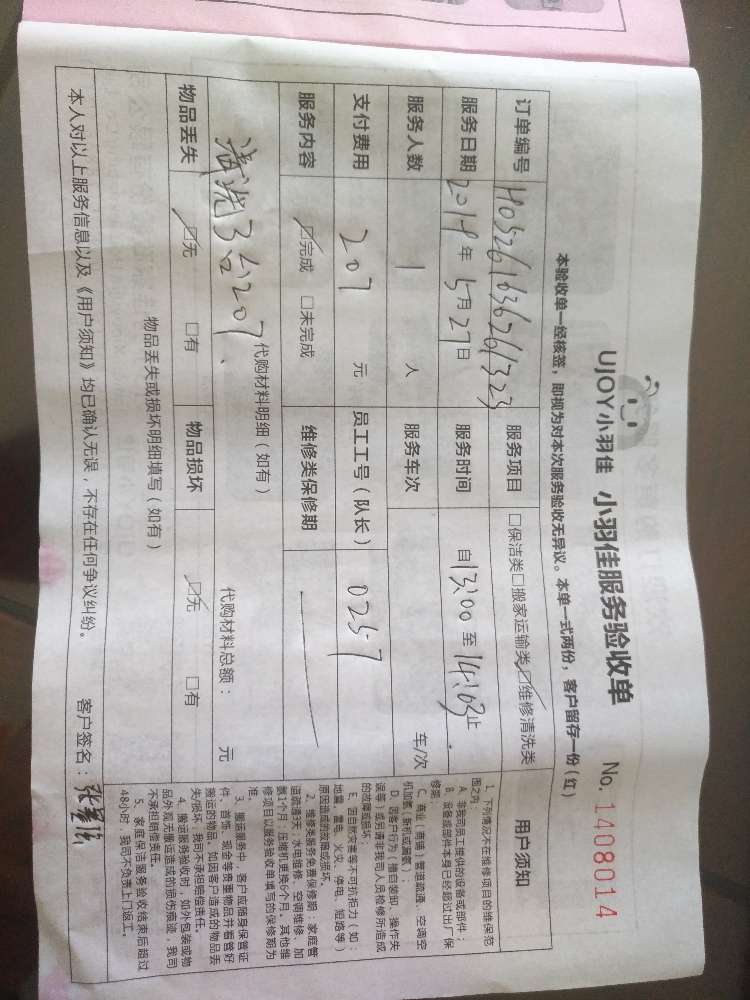 UJOY小羽佳 小羽佳服务验收单 No. 1408014
本验收单一经核签，即视为对本次服务验收无异议。本单一式两份，客户留存一份（红）
订单编号 H05261636261323 服务项目 □保洁类□搬家运输类☑维修清洗类
服务日期 2019年5月27日 服务时间 自13:00至14:03止
服务人数 1 人 服务车次 车/次
支付费用 207 元 员工工号（队长） 0257
服务内容 ☑完成 □未完成 维修类保修期
代购材料明细（如有） 代购材料总额： 元
清洗3台207、
物品丢失 ☑无 □有 物品损坏 ☑无 □有
物品丢失或损坏明细填写（如有）
本人对以上服务信息以及《用户须知》均已确认无误，不存在任何争议纠纷。 客户签名：
用户须知
1. 下列情况不在维修项目的维保范
围之内：
A. 非我司员工提供的设备或部件；
B. 设备或部件本身已经超过出厂保
修期；
C. 商业（商铺）管道疏通、空调空
机加氟（新机或漏氟）；
D. 因客户行为（擅自装卸、操作失
误等）或另请非我司人员检修所造成
的故障或损坏；
E. 因自然灾害等不可抗拒力（如：
地震、雷电、火灾、停电、短路等）
原因造成的故障或损坏。
2. 维修类服务免费保修期：家庭管
道疏通3天；水电维修、空调维修、加
氨1个月；压缩机更换6个月。其他维
修项目以服务验收单填写的保修期为
准。
3. 搬运服务中，客户应随身保管证
件、首饰、现金等贵重物品并看管好
搬运的物品，如因客户造成的物品丢
失/损坏，我司不承担赔偿责任。
4. 搬运服务验收时，如外包装或物
品外观无搬运造成的损伤痕迹，我司
不承担赔偿责任。
5. 家庭保洁服务验收结束后超过
48小时，我司不负责上门返工。